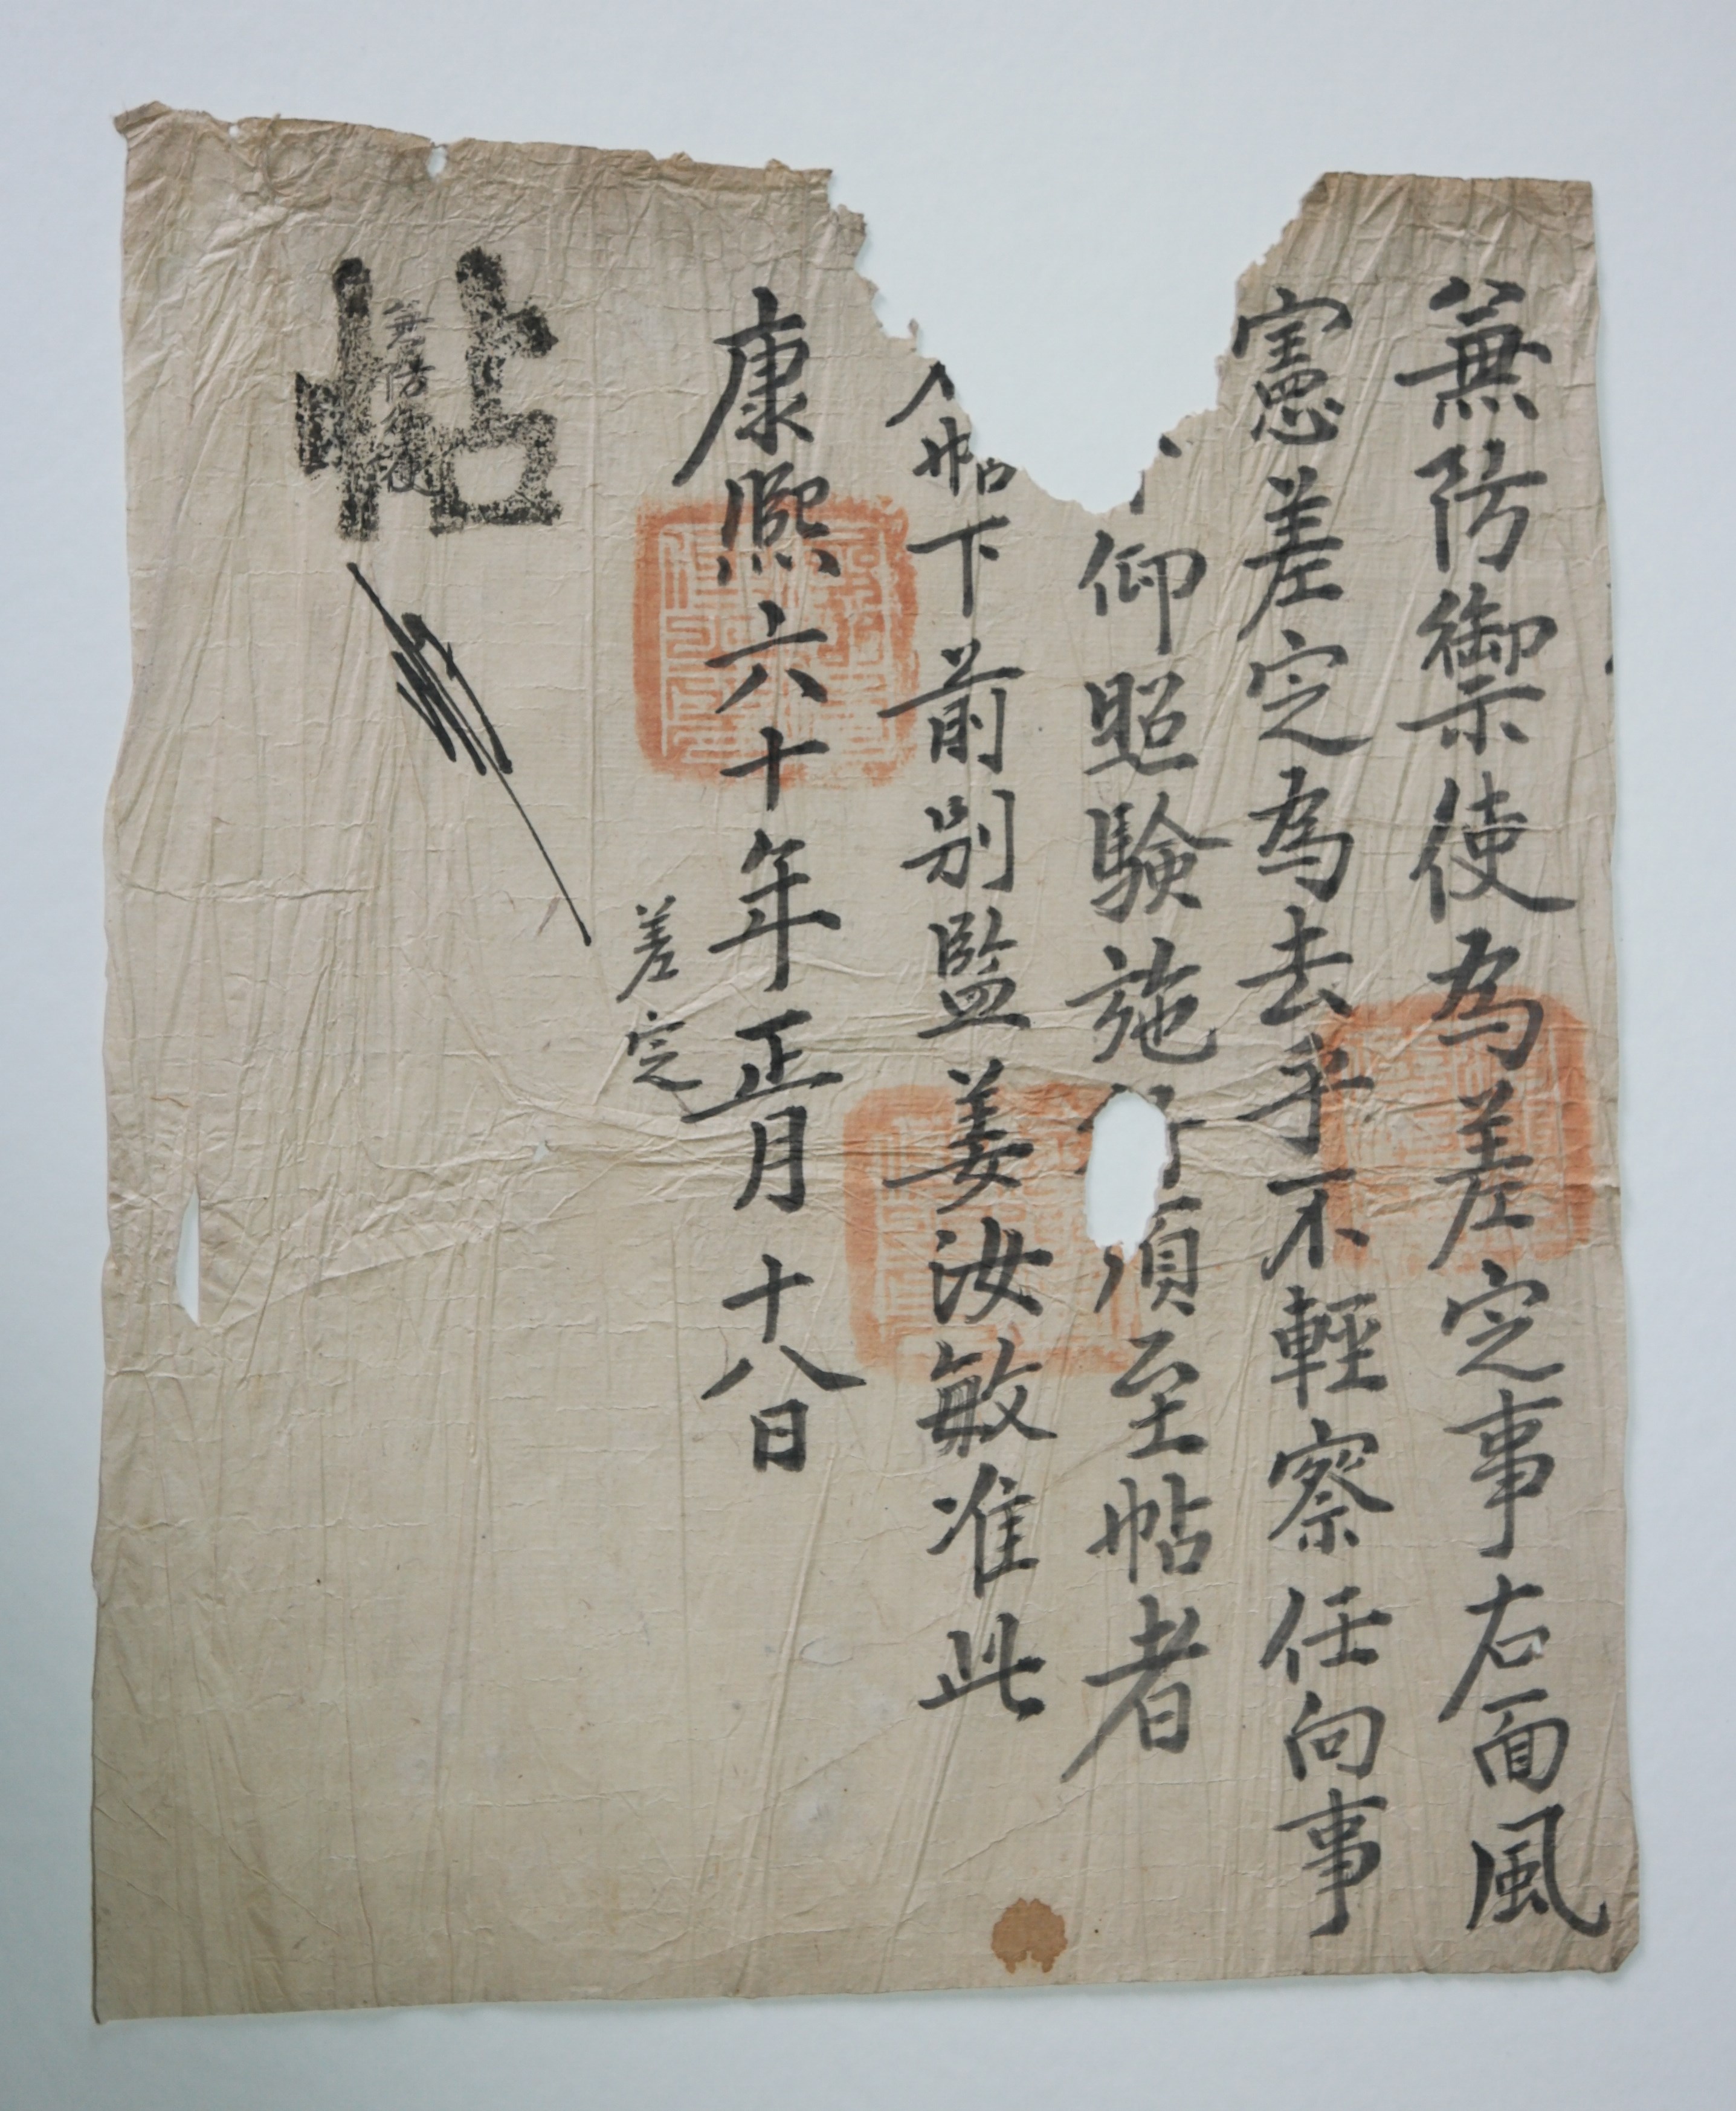 兼防禦使為差㝎事右面風
憲差㝎為去乎不輕察任向事
仰照驗施行須至帖者
帖下前別監姜汝敏准此
康熙六十年正月十八日
差㝎
帖
兼防禦使